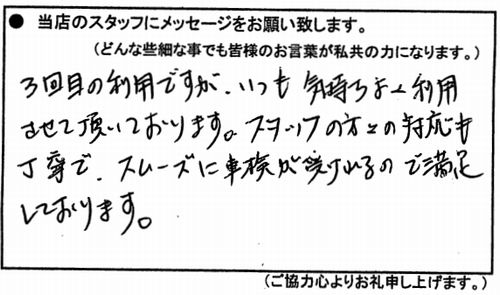 ● 当店のスタッフにメッセージをお願い致します。
(どんな些細な事でも皆様のお言葉が私共の力になります。)
3回目の利用ですが、いつも気持ちよく利用
させて頂いております。スタッフの方々の対応も
丁寧で、スムーズに車検が受けれるので満足
しております。
(ご協力心よりお礼申し上げます。)